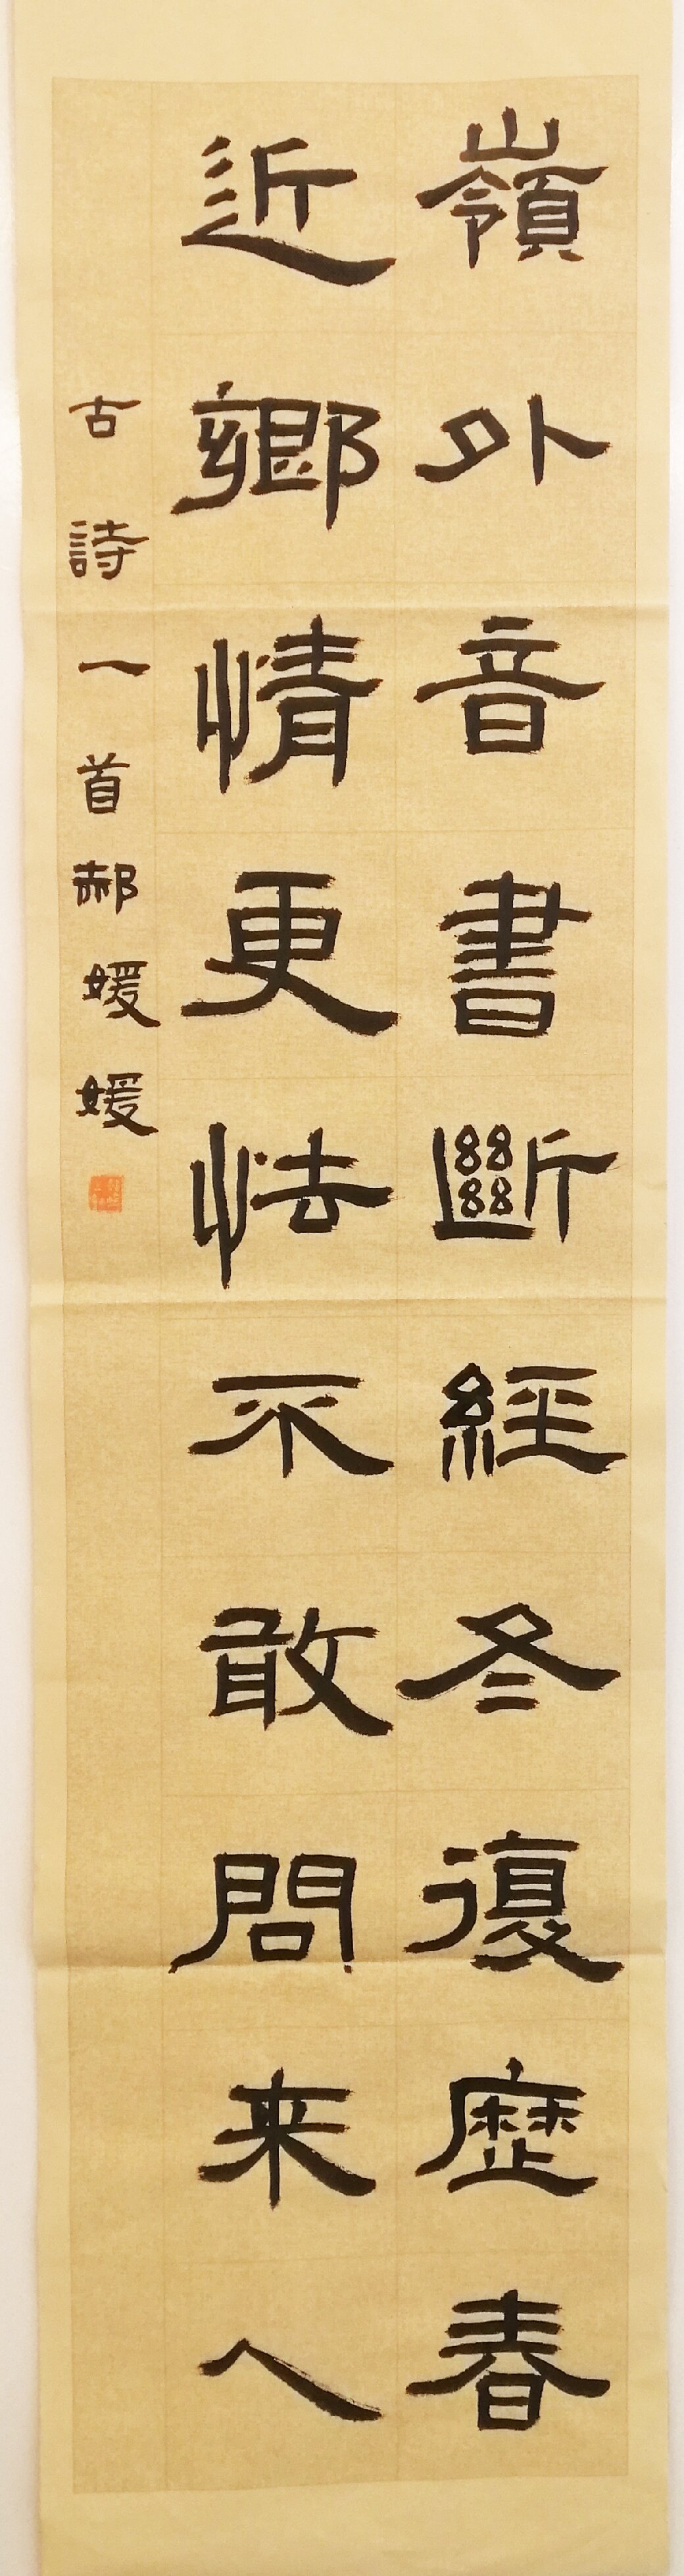 嶺外音書斷經冬復歷春
近鄉情更怯不敢問来人
古詩一首郝媛媛